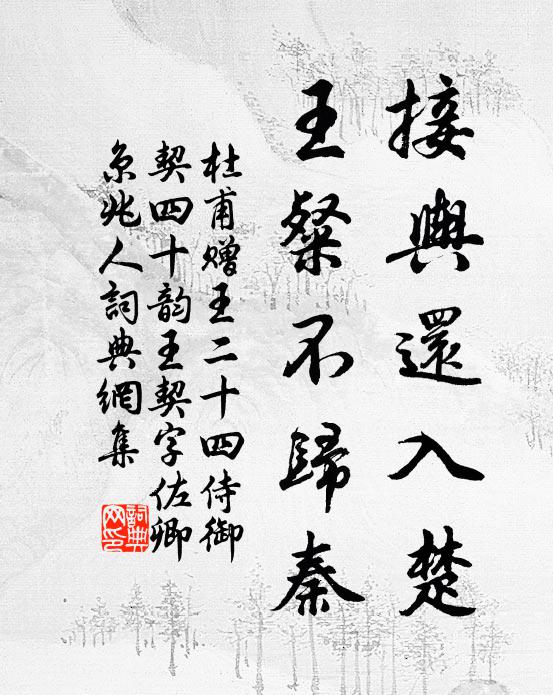 接輿還入楚
王粲不歸秦
杜甫贈王二十四侍御
契四十韵王契字佐卿
京兆人詞典網集
詞典网印